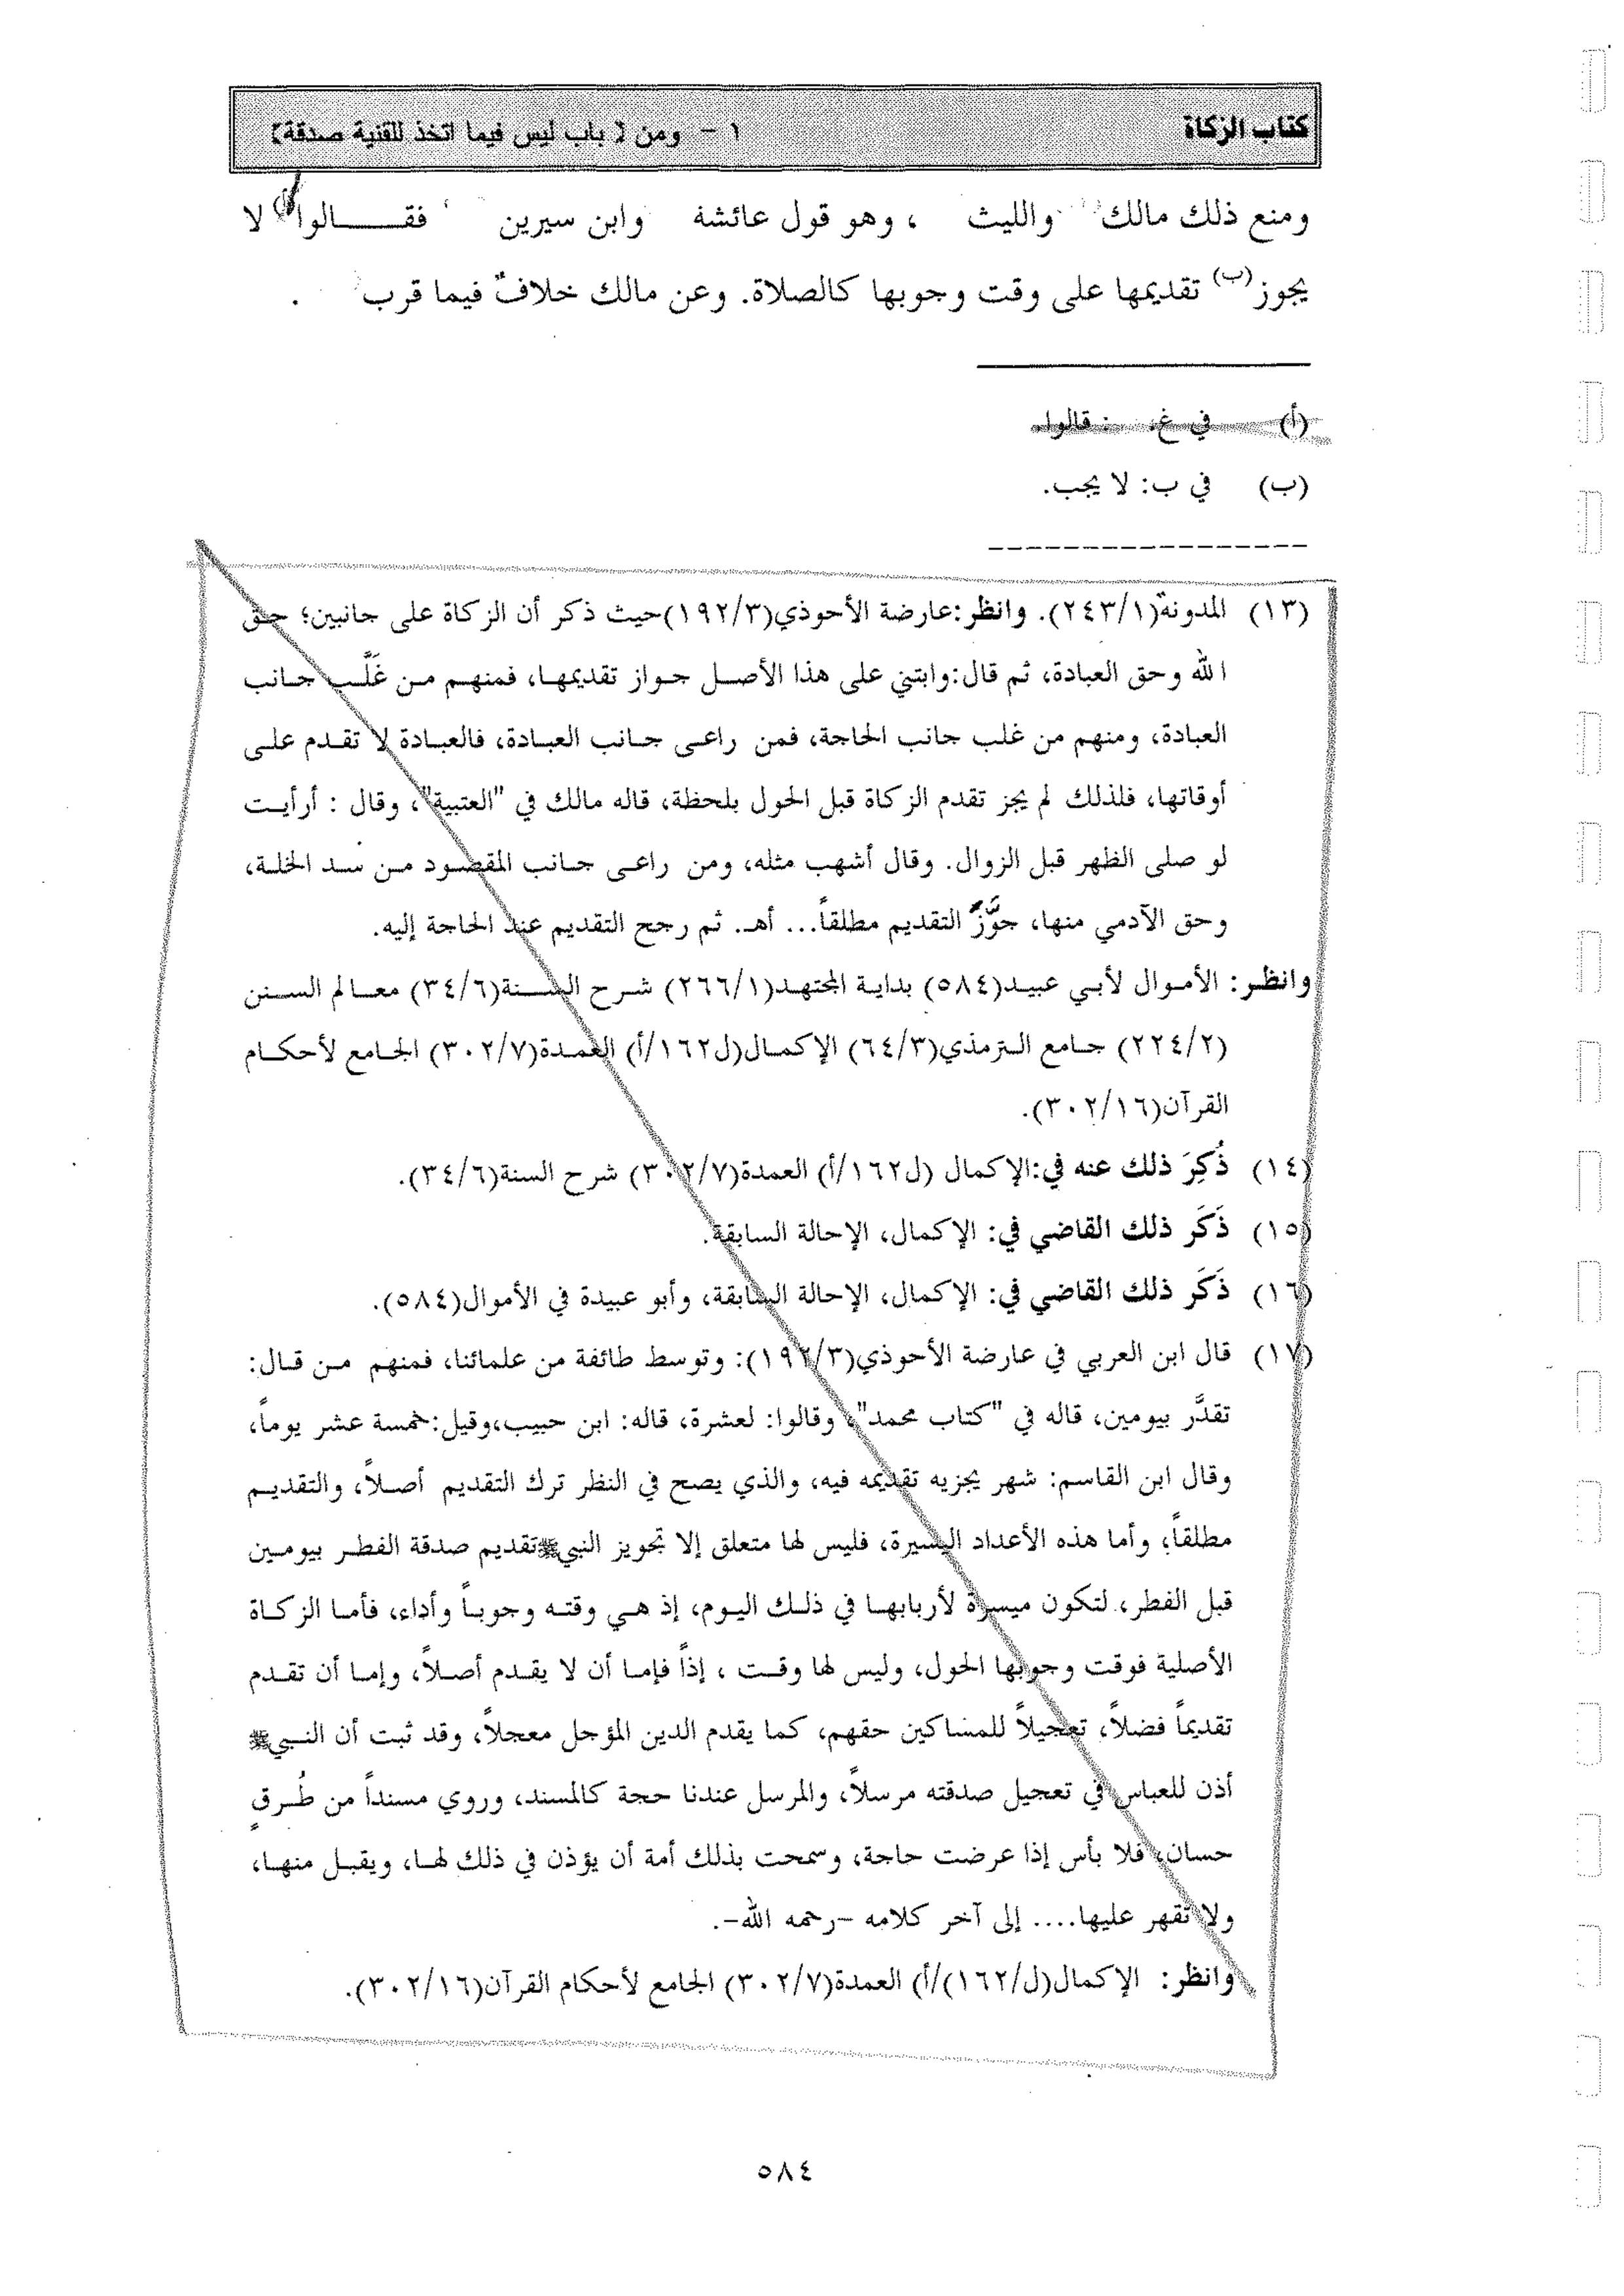 كتاب الزكاة
١ - ومن [ باب ليس فيما اتخذ للقنية صدقة]
ومنع ذلك مالك والليث ، وهو قول عائشة وابن سيرين فقـــــالوا(أ) لا
يجوز(ب) تقديمها على وقت وجوبها كالصلاة. وعن مالك خلافٌ فيما قرب .
(أ) في غ. : قالوا.
(ب) في ب: لا يجب.
(١٣) المدونة(٢٤٣/١). وانظر:عارضة الأحوذي(١٩٢/٣)حيث ذكر أن الزكاة على جانبين؛ حق
الله وحق العبادة، ثم قال:وابتني على هذا الأصل جواز تقديمها، فمنهم من غَلَّب جانب
العبادة، ومنهم من غلب جانب الحاجة، فمن راعى جانب العبادة، فالعبادة لا تقدم على
أوقاتها، فلذلك لم يجز تقدم الزكاة قبل الحول بلحظة، قاله مالك في "العتبية"، وقال : أرأيت
لو صلى الظهر قبل الزوال. وقال أشهب مثله، ومن راعى جانب المقصود من سد الخلة،
وحق الآدمي منها، جوَّزَ التقديم مطلقاً... أهـ. ثم رجح التقديم عند الحاجة إليه.
وانظر: الأموال لأبي عبيد(٥٨٤) بداية المجتهد(٢٦٦/١) شرح السنة(٣٤/٦) معالم السنن
(٢٢٤/٢) جامع الترمذي(٦٤/٣) الإكمال(ل١٦٢/أ) العمدة(٣٠٢/٧) الجامع لأحكام
القرآن(٣٠٢/١٦).
(١٤) ذُكِرَ ذلك عنه في:الإكمال (ل١٦٢/أ) العمدة(٣٠٢/٧) شرح السنة(٣٤/٦).
(١٥) ذَكَر ذلك القاضي في: الإكمال، الإحالة السابقة.
(١٦) ذَكَر ذلك القاضي في: الإكمال، الإحالة السابقة، وأبو عبيدة في الأموال(٥٨٤).
(١٧) قال ابن العربي في عارضة الأحوذي(١٩٢/٣): وتوسط طائفة من علمائنا، فمنهم من قال:
تقدَّر بيومين، قاله في "كتاب محمد"، وقالوا: لعشرة، قاله: ابن حبيب،وقيل:خمسة عشر يوماً،
وقال ابن القاسم: شهر يجزيه تقديمه فيه، والذي يصح في النظر ترك التقديم أصلاً، والتقديم
مطلقاً، وأما هذه الأعداد اليسيرة، فليس لها متعلق إلا تجويز النبيﷺتقديم صدقة الفطر بيومين
قبل الفطر، لتكون ميسرة لأربابها في ذلك اليوم، إذ هي وقته وجوباً وأداء، فأما الزكاة
الأصلية فوقت وجوبها الحول، وليس لها وقت ، إذاً فإما أن لا يقدم أصلاً، وإما أن تقدم
تقديماً فضلاً، تعجيلاً للمساكين حقهم، كما يقدم الدين المؤجل معجلاً، وقد ثبت أن النبيﷺ
أذن للعباس في تعجيل صدقته مرسلاً، والمرسل عندنا حجة كالمسند، وروي مسنداً من طُرقٍ
حسان، فلا بأس إذا عرضت حاجة، وسمحت بذلك أمة أن يؤذن في ذلك لها، ويقبل منها،
ولا تقهر عليها.... إلى آخر كلامه -رحمه الله-.
وانظر: الإكمال(ل/١٦٢)/أ) العمدة(٣٠٢/٧) الجامع لأحكام القرآن(٣٠٢/١٦).
٥٨٤